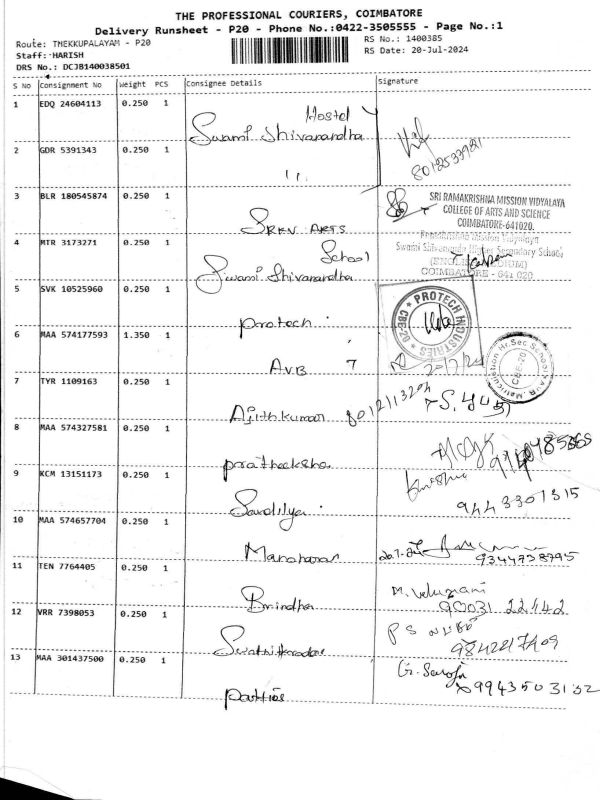 THE PROFESSIONAL COURIERS, COIMBATORE
Delivery Runsheet - P20 - Phone No.:0422-3505555 - Page No.:1
Route: THEKKUPALAYAM - P20
RS No.: 1400385
Staff: HARISH
RS Date: 20-Jul-2024
DRS No.: DCJB140038501
S No Consignment No Weight PCS Consignee Details Signature
1 EDQ 24604113 0.250 1
Hostel
Swami Shivanandha
2 GDR 5391343 0.250 1
8012533921
3 BLR 180545874 0.250 1
SRI RAMAKRISHNA MISSION VIDYALAYA
COLLEGE OF ARTS AND SCIENCE
COIMBATORE-641020.
SRKV ARTS
4 MTR 3173271 0.250 1
Ramakrishna Mission Vidyalaya
Swami Shivananda Higher Secondary School
(ENGLISH MEDIUM)
COIMBATORE - 641 020
School
Swami Shivanandha
5 SVK 10525960 0.250 1
PROTECH INDUSTRIES
CBE-20
Protech
6 MAA 574177593 1.350 1
AVB 7
20/7/24
Matriculation Hr.Sec.School
CBE-20
7 TYR 1109163 0.250 1
Ajithkumar 8012113204
8 MAA 574327581 0.250 1
Pratheeksha
9 KCM 13151173 0.250 1
Sandilya
9443307315
10 MAA 574657704 0.250 1
Manoharan
9344738795
11 TEN 7764405 0.250 1
Brindha
M. Velumani
90031 22442
12 VRR 7398053 0.250 1
13 MAA 301437500 0.250 1
G. Saroja
9943503132